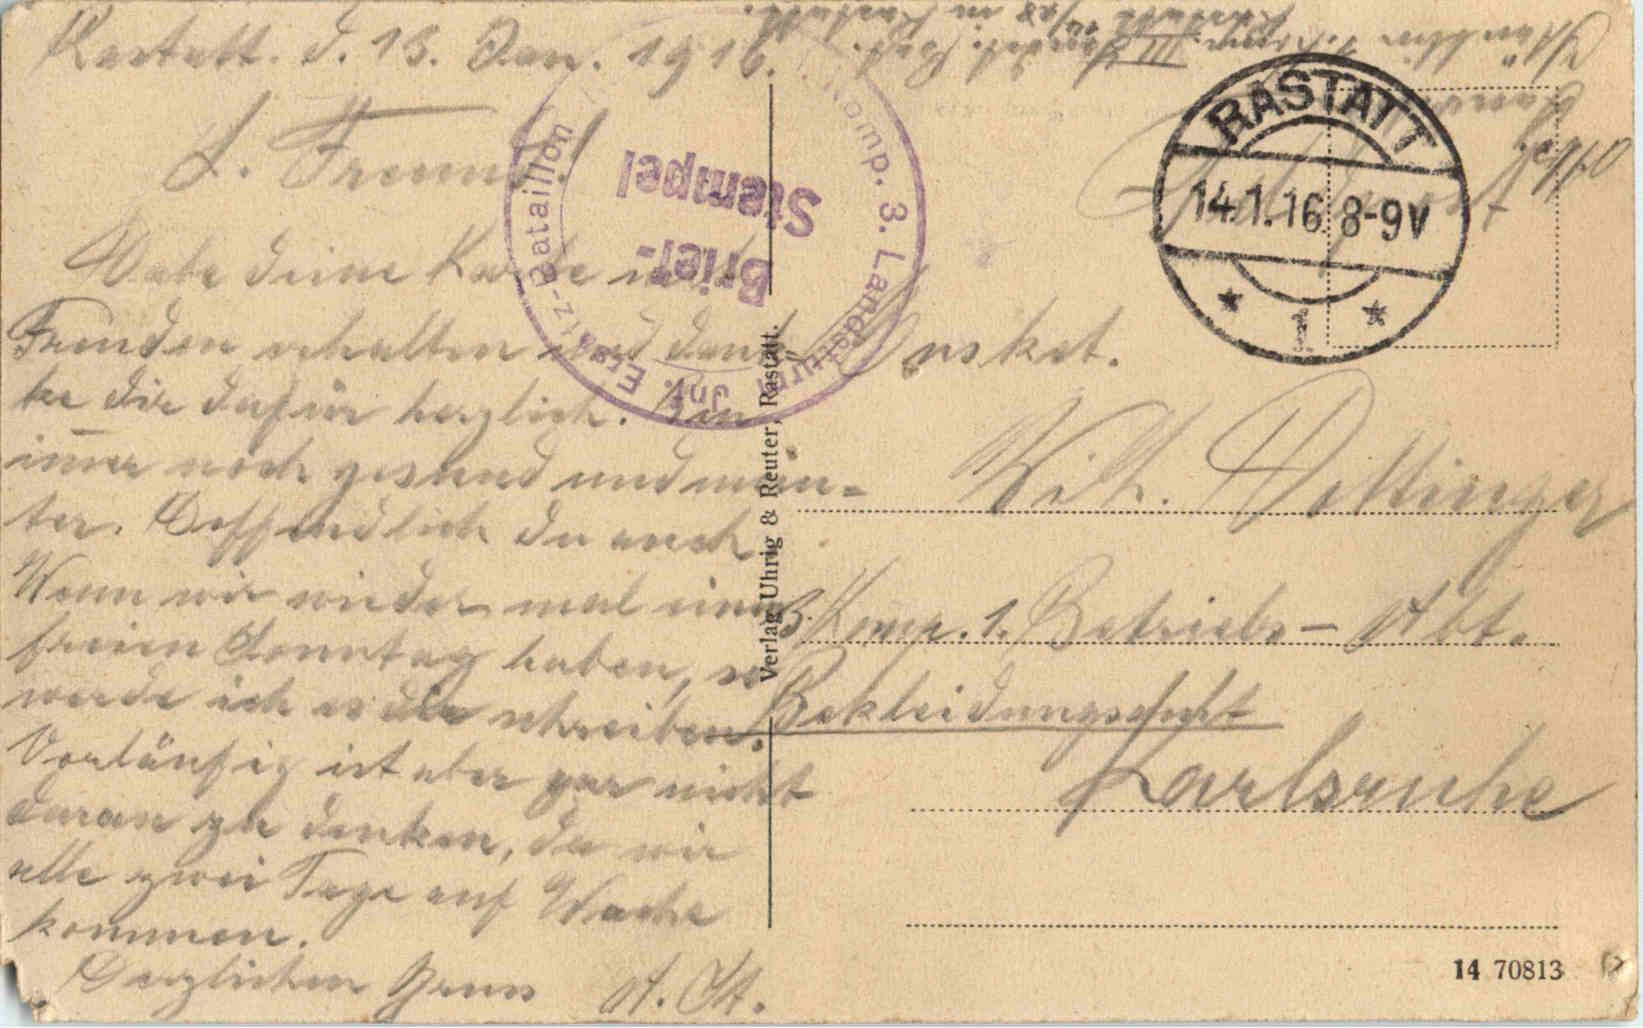 Rastatt. d. 13. Jan. 1916.
L. Freund!
Habe deine Karte mit
Freuden erhalten und dan-
ke dir dafür herzlich. Bin
immer noch gesund und mun-
ter. Hoffendlich du auch
Wenn wir wieder mal einen
freien Sonntag haben, so
werde ich es dir schreiben.
Vorläufig ist aber gar nicht
daran zu denken, da wir
alle zwei Tage auf Wache
kommen.
Herzlichen Gruss A. St.
Komp. 3. Landsturm Inf. Ersatz-Bataillon
Brief-
Stempel
Verlag Uhrig & Reuter, Rastatt.
RASTATT
14.1.16. 8-9V
* 1 *
Feldpost
Musket.
Wilh. Dettinger
3. Komp. 1. Betriebs-Abt.
Bekleidungsamt
Karlsruhe
14 70813